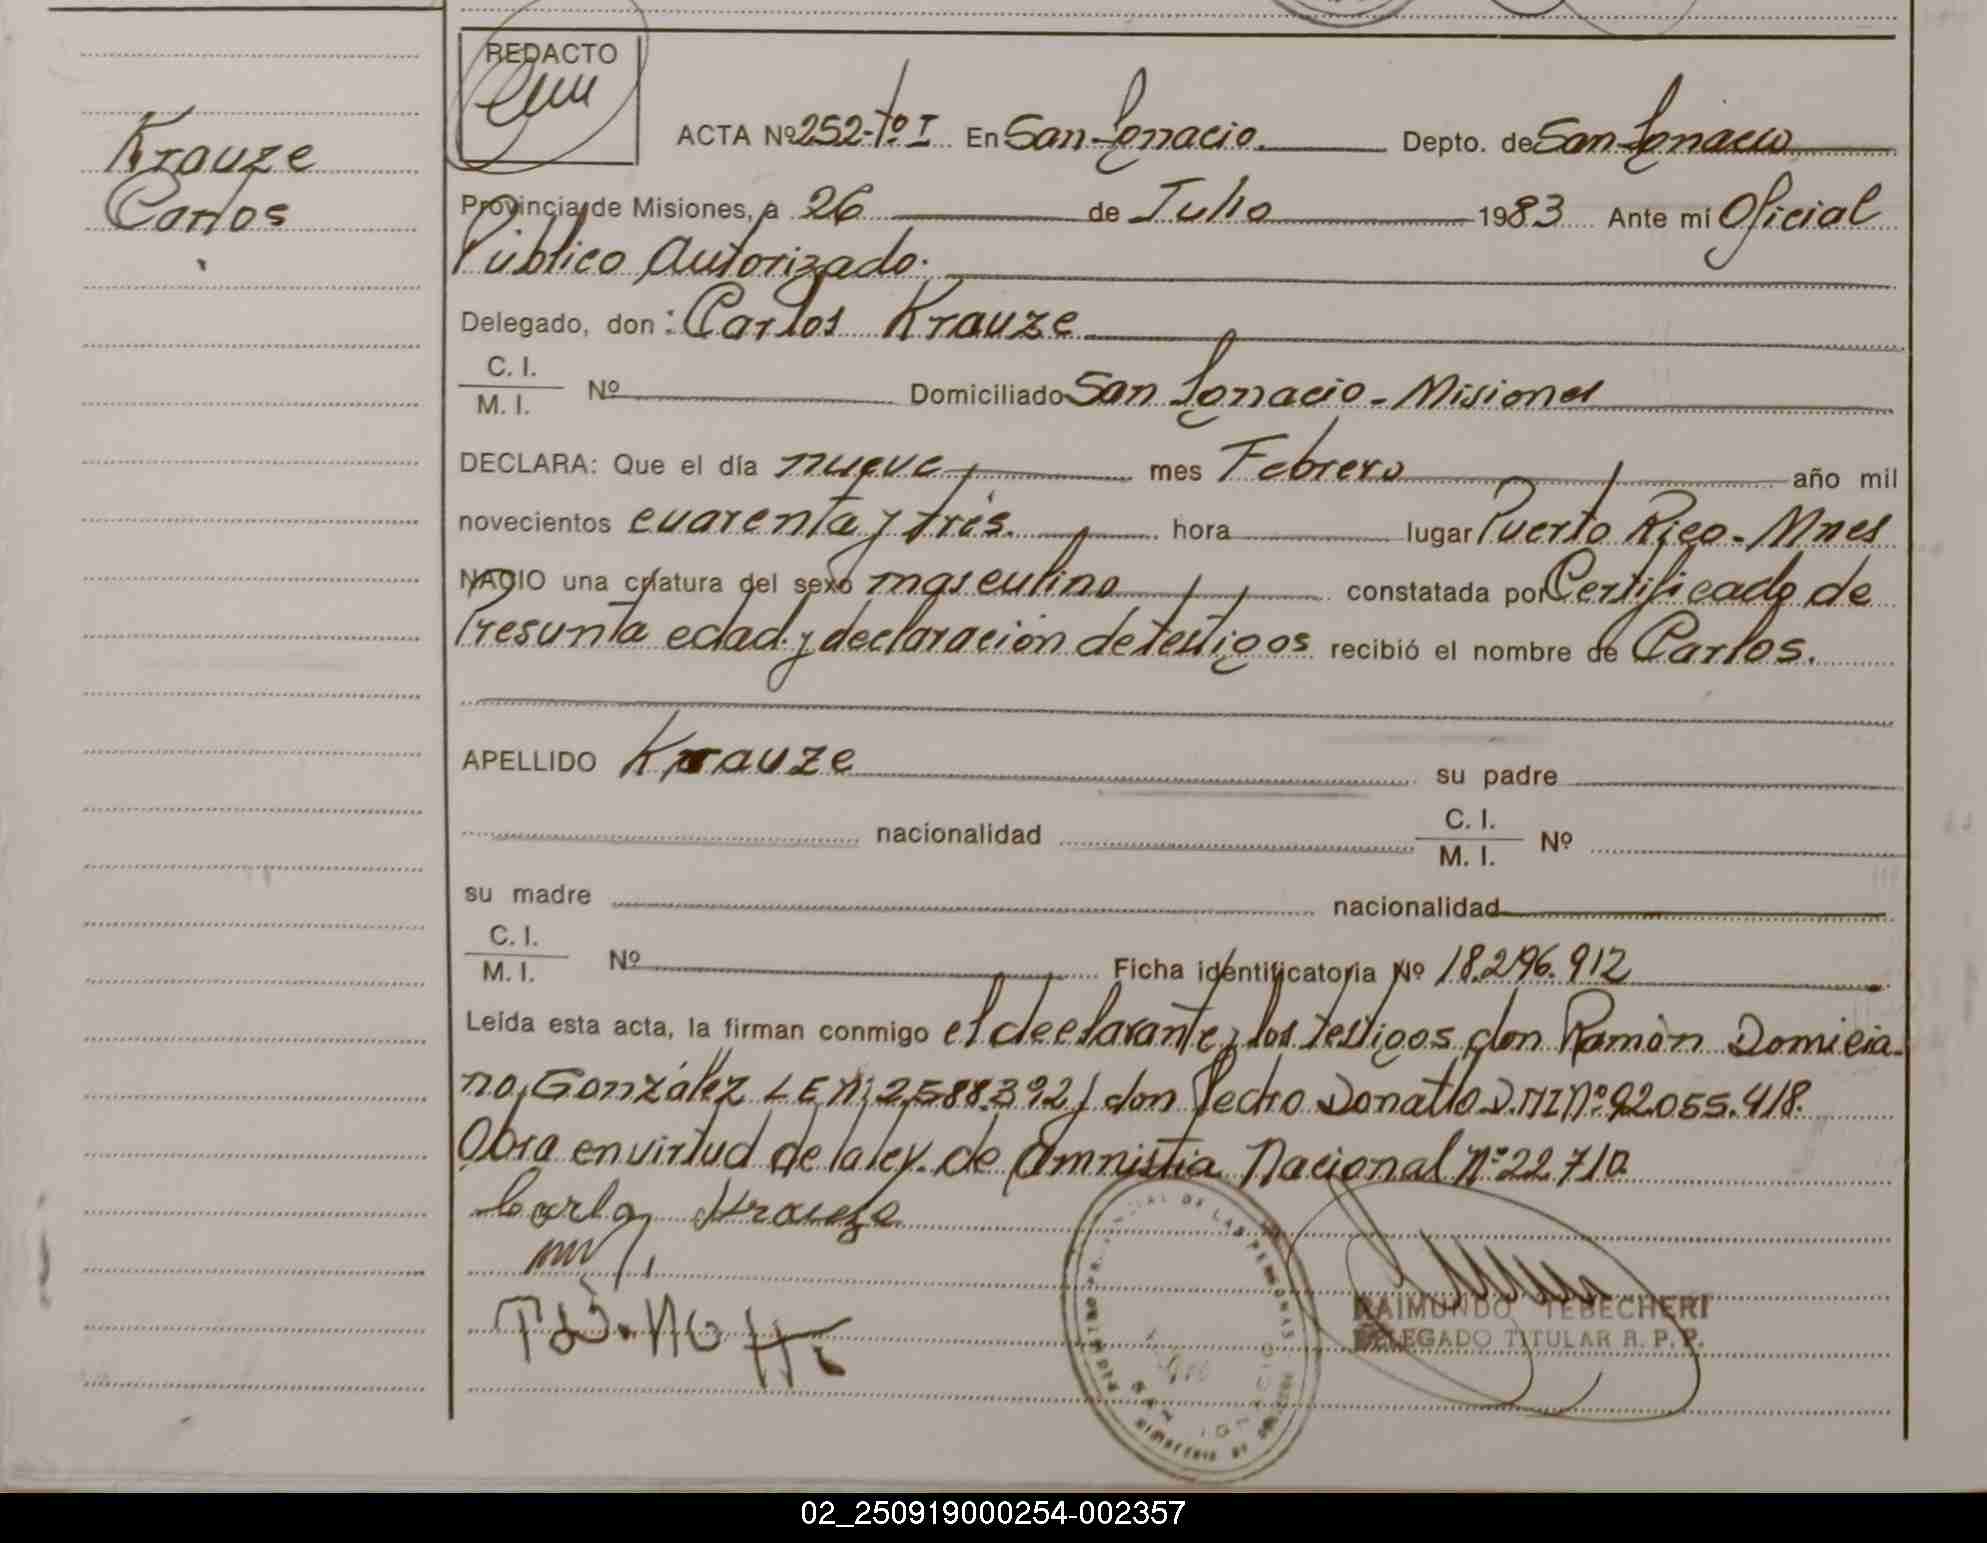 REDACTO
Krauze
Carlos
ACTA Nº 252-Tº I En San Ignacio. Depto. de San Ignacio
Provincia de Misiones, a 26 de Julio 1983 Ante mi Oficial
Público Autorizado.
Delegado, don: Carlos Krauze
C. I.
M. I. Nº Domiciliado San Ignacio - Misiones
DECLARA: Que el día nueve mes Febrero año mil
novecientos cuarenta y trés. hora lugar Puerto Rico - Mnes
NACIO una criatura del sexo masculino constatada por Certificado de
Presunta edad y declaración de testigos recibió el nombre de Carlos.
APELLIDO Krauze su padre
nacionalidad C. I.
M. I. Nº
su madre nacionalidad
C. I.
M. I. Nº Ficha identificatoria Nº 18.296.912
Leída esta acta, la firman conmigo el declarante y los testigos don Ramón Domicia-
no González L E Nº 2.588.392 y don Pedro Donatto D.NI Nº 92.055.418.
Obra en virtud de la ley de amnistia Nacional Nº 22.710
Carlos Krauze
RAIMUNDO TEBECHERI
DELEGADO TITULAR R. P. P.
02_250919000254-002357